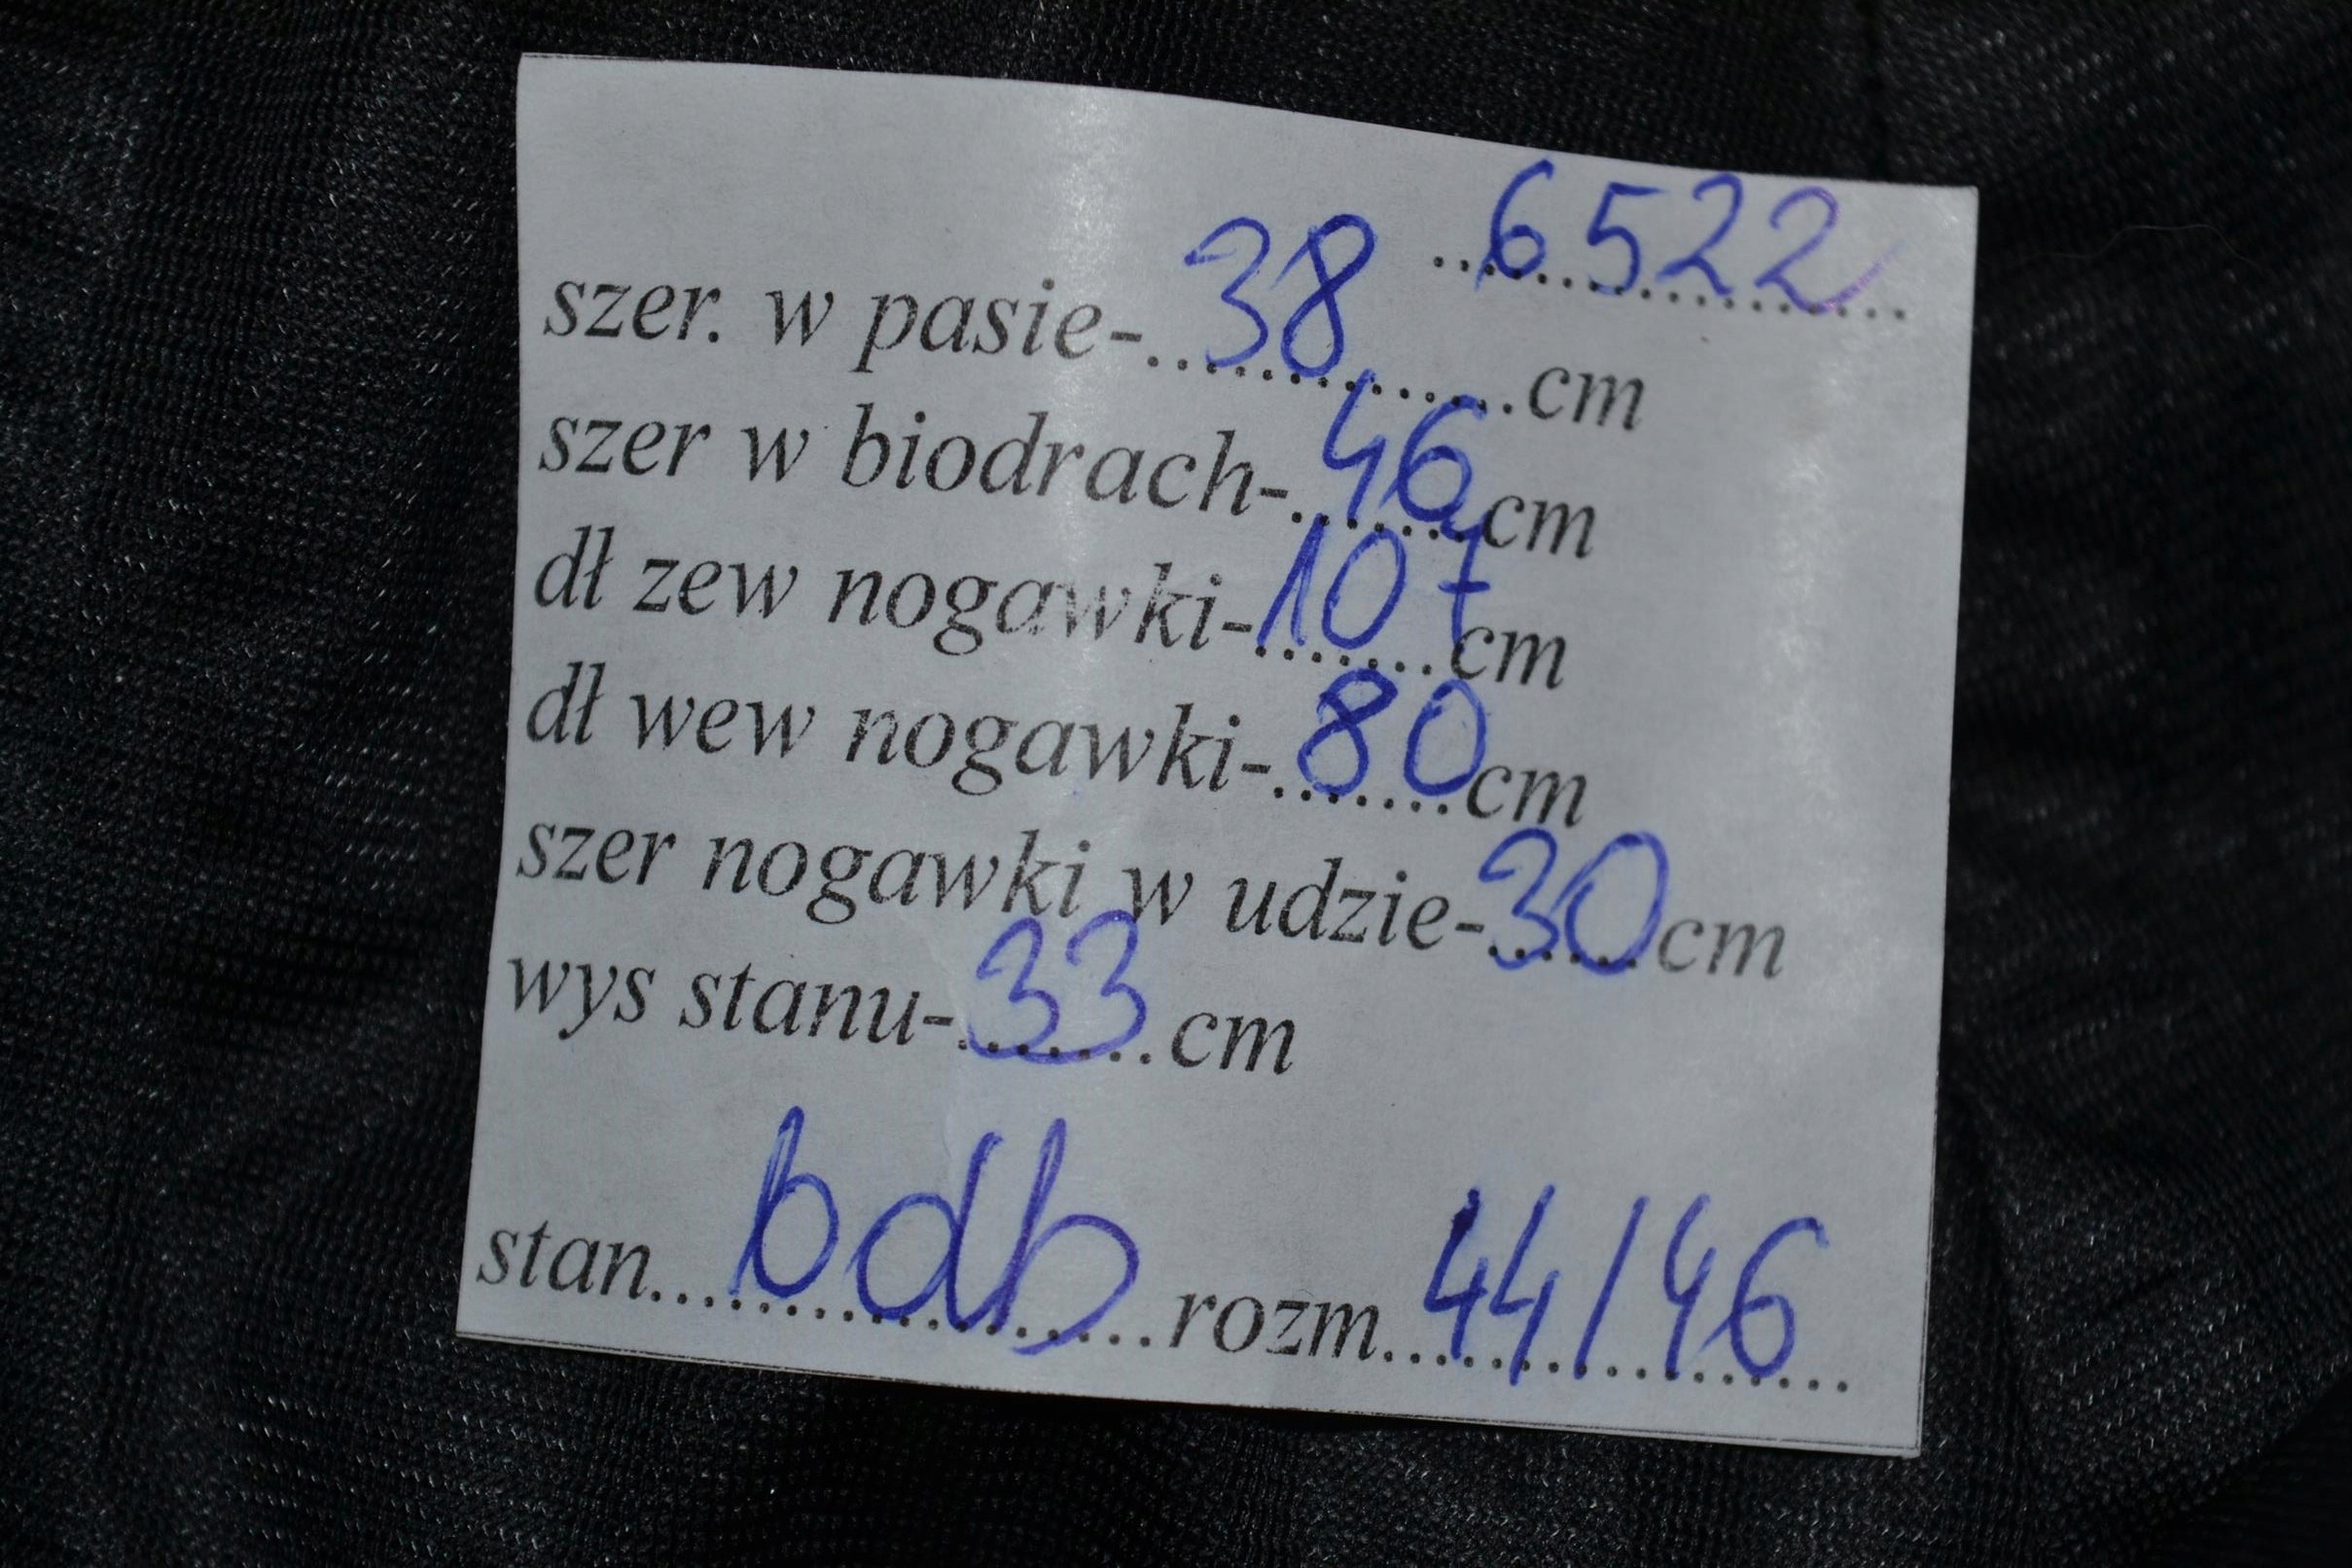 6522
szer. w pasie-..38............cm
szer w biodrach-..46....cm
dł zew nogawki-107cm
dł wew nogawki-..80cm
szer nogawki w udzie-30cm
wys stanu-33.cm
stan....bdb....rozm..44/46....